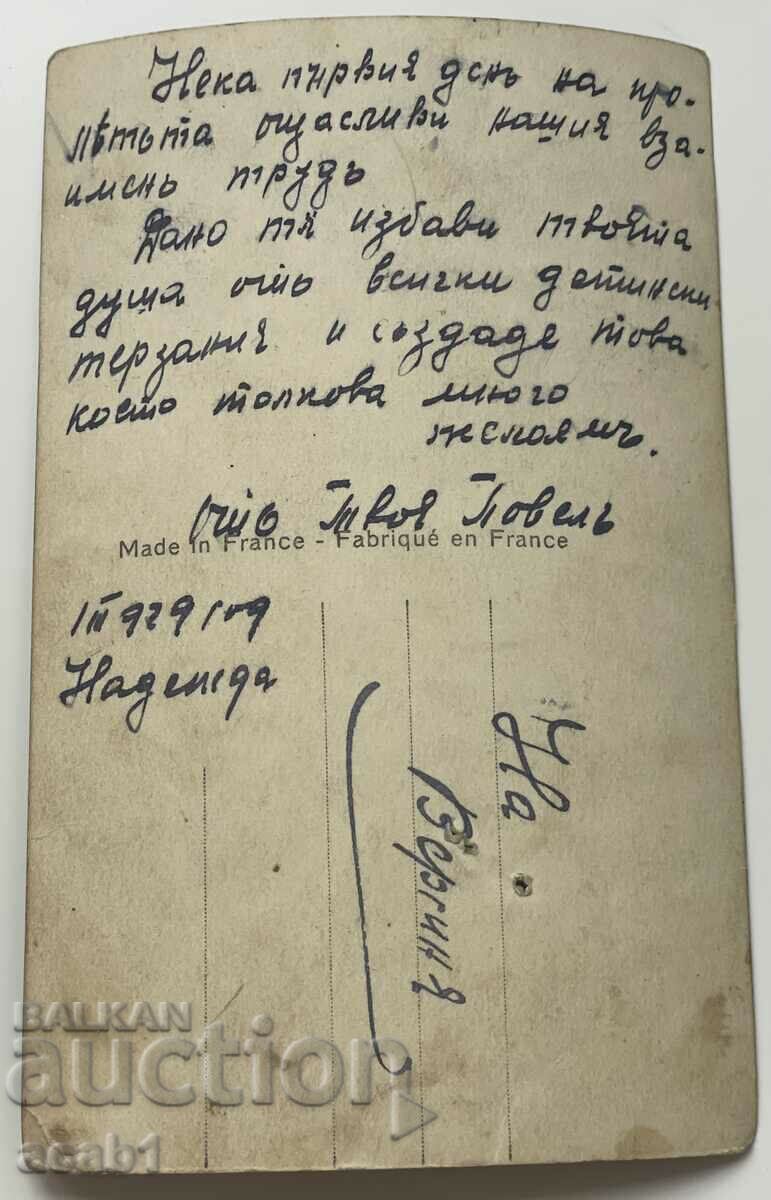 Нека първия день на про-
лѣтьта ощасливи нашия вза-
имень трудъ
Дано тя избави твоята
душа отъ всички детински
терзания и създаде това
което толкова много
желаемъ.
Отъ Твоя Павелъ
Made in France - Fabriqué en France
год
Надежда
На
Вергиня
BALKAN
auction
acab1